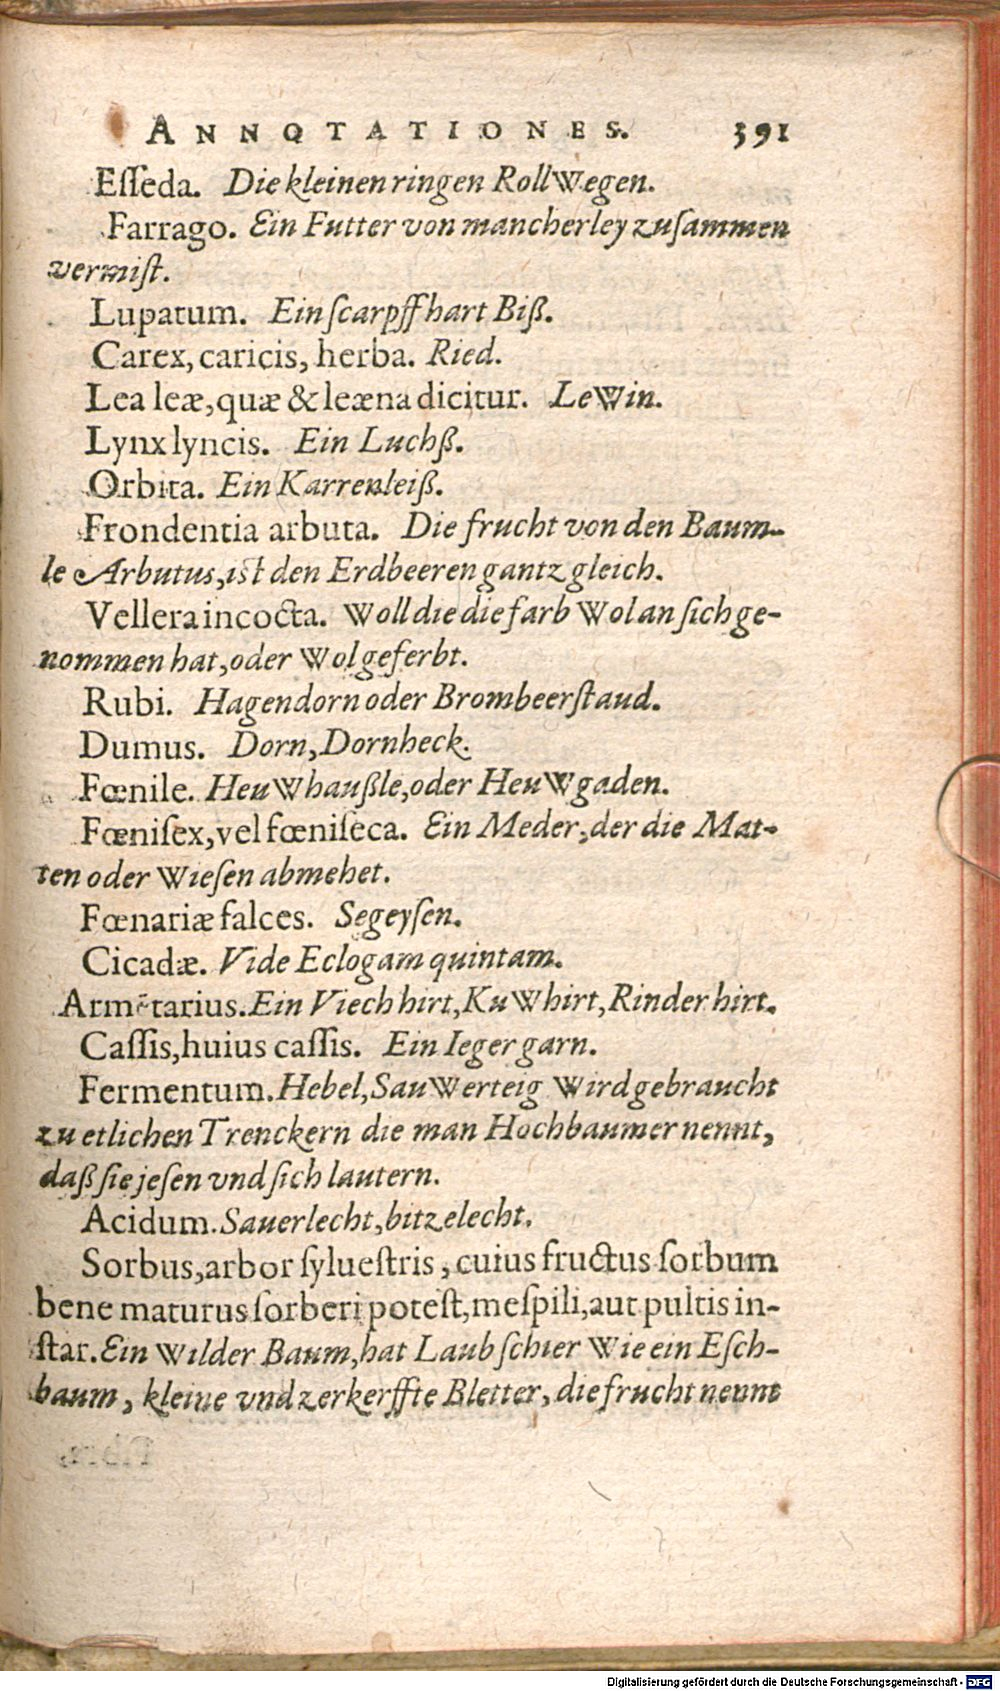 ANNOTATIONES. 391
Eſſeda. Die kleinen ringen RollWegen.
Farrago. Ein Futter von mancherley zuſammen
vermiſt.
Lupatum. Ein ſcarpff hart Biß.
Carex, caricis, herba. Ried.
Lea leæ, quæ & leæna dicitur. LeWin.
Lynx lyncis. Ein Luchß.
Orbita. Ein Karrenleiß.
Frondentia arbuta. Die frucht von den Baum-
le Arbutus, iſt den Erdbeeren gantz gleich.
Vellera incocta. Woll die die farb Wol an ſich ge-
nommen hat, oder Wol geferbt.
Rubi. Hagendorn oder Brombeerſtaud.
Dumus. Dorn, Dornheck.
Fœnile. HeuWhaußle, oder HeuWgaden.
Fœniſex, vel fœniſeca. Ein Meder, der die Mat-
ten oder Wieſen abmehet.
Fœnariæ falces. Segeyſen.
Cicadæ. Vide Eclogam quintam.
Armētarius. Ein Viech hirt, KuWhirt, Rinder hirt.
Caſſis, huius caſſis. Ein Ieger garn.
Fermentum. Hebel, SauWerteig Wird gebraucht
zu etlichen Trenckern die man Hochbaumer nennt,
daß ſie jeſen vnd ſich lautern.
Acidum. Sauerlecht, bitzelecht.
Sorbus, arbor ſylueſtris, cuius fructus ſorbum
bene maturus ſorberi poteſt, meſpili, aut pultis in-
ſtar. Ein Wilder Baum, hat Laub ſchier Wie ein Eſch-
baum, kleine vnd zerkerffte Bletter, die frucht nennt
Digitalisierung gefördert durch die Deutsche Forschungsgemeinschaft - DFG